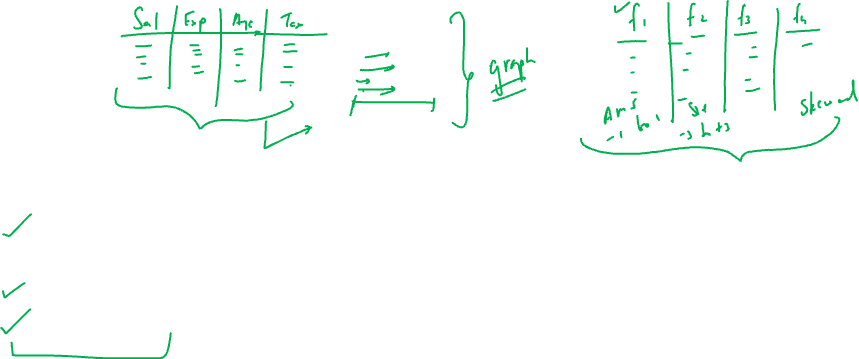 Sal Exp Age Tax
graph
f1 f2 f3 f4
-1 to 1
-3 to +3
Skewed